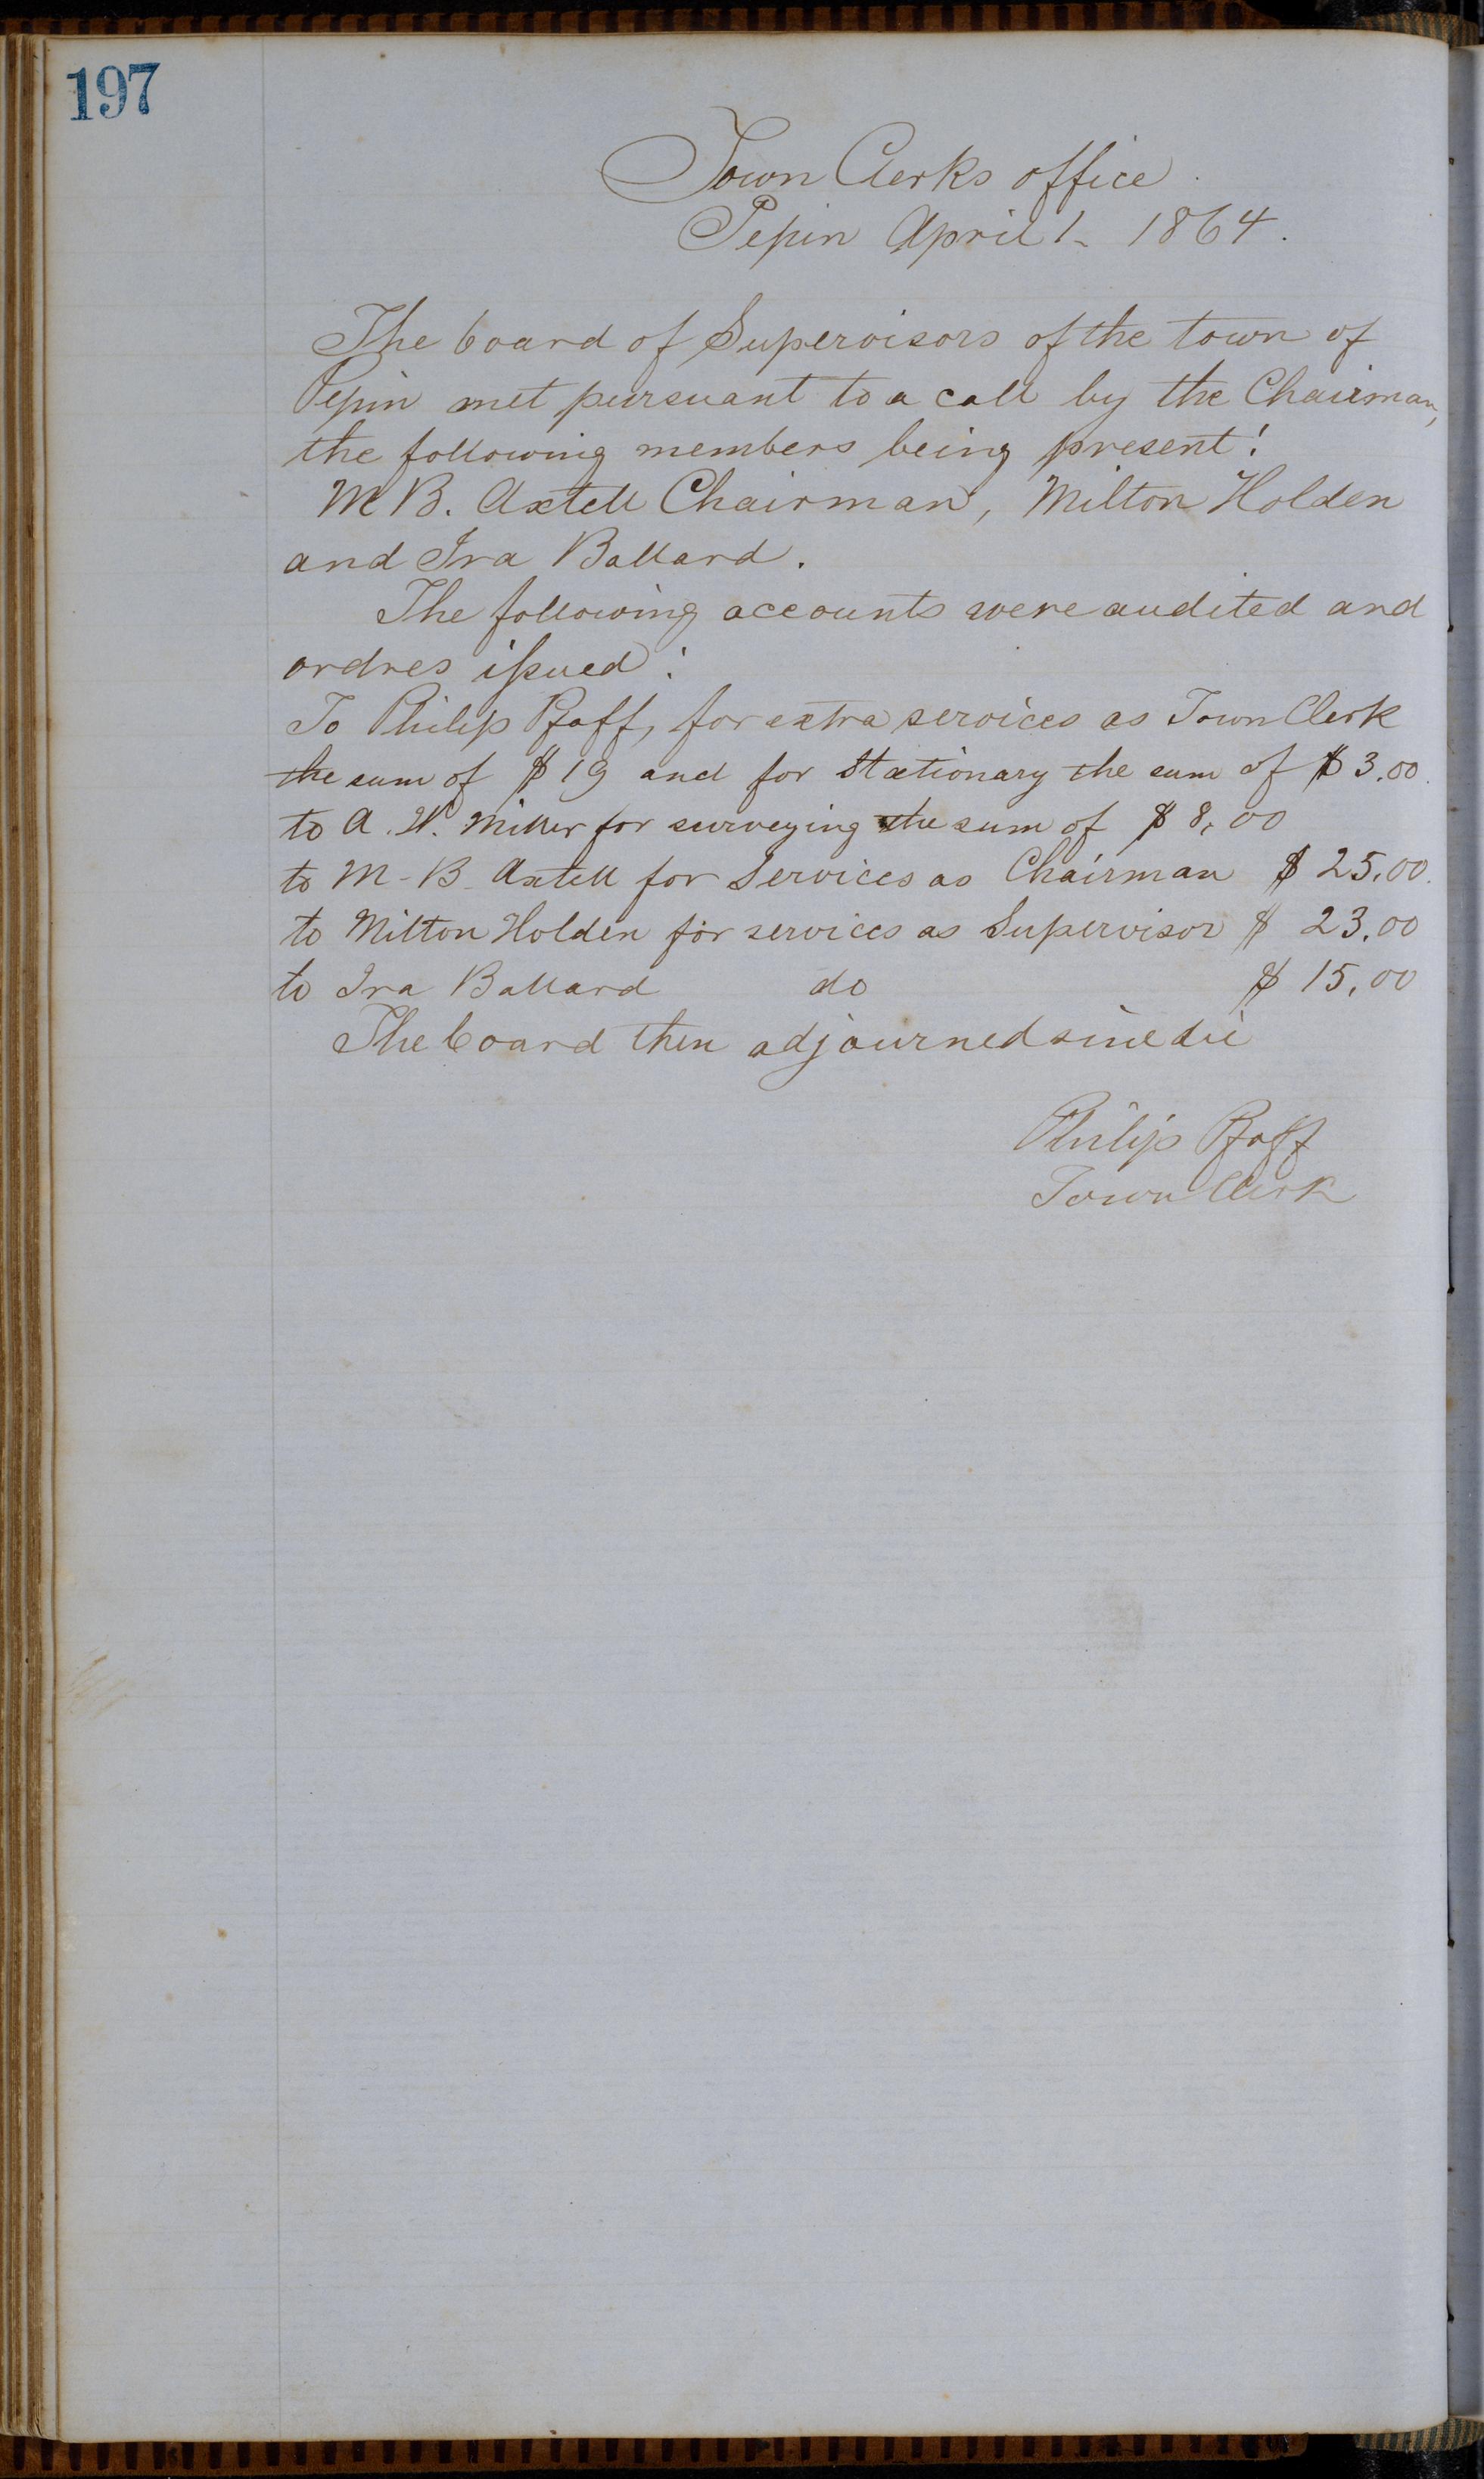 197
Town Clerks office
Pepin April 1- 1864.
The board of Supervisors of the town of
Pepin met pursuant to a call by the Chairman,
the following members being present:
M B. Axtell Chairman, Milton Holden
and Ira Ballard.
The following accounts were audited and
ordres issued:
To Philip Pfaff, for extra services as Town Clerk
the sum of $19 and for Stationary the sum of $3.00.
to A. W. Miller for surveying the sum of $8,00
to M-B- Axtell for Services as Chairman $25.00.
to Milton Holden for services as Supervisor $23.00
to Ira Ballard do $15,00
The board then adjourned sine die
Philip Pfaff
Town Clerk